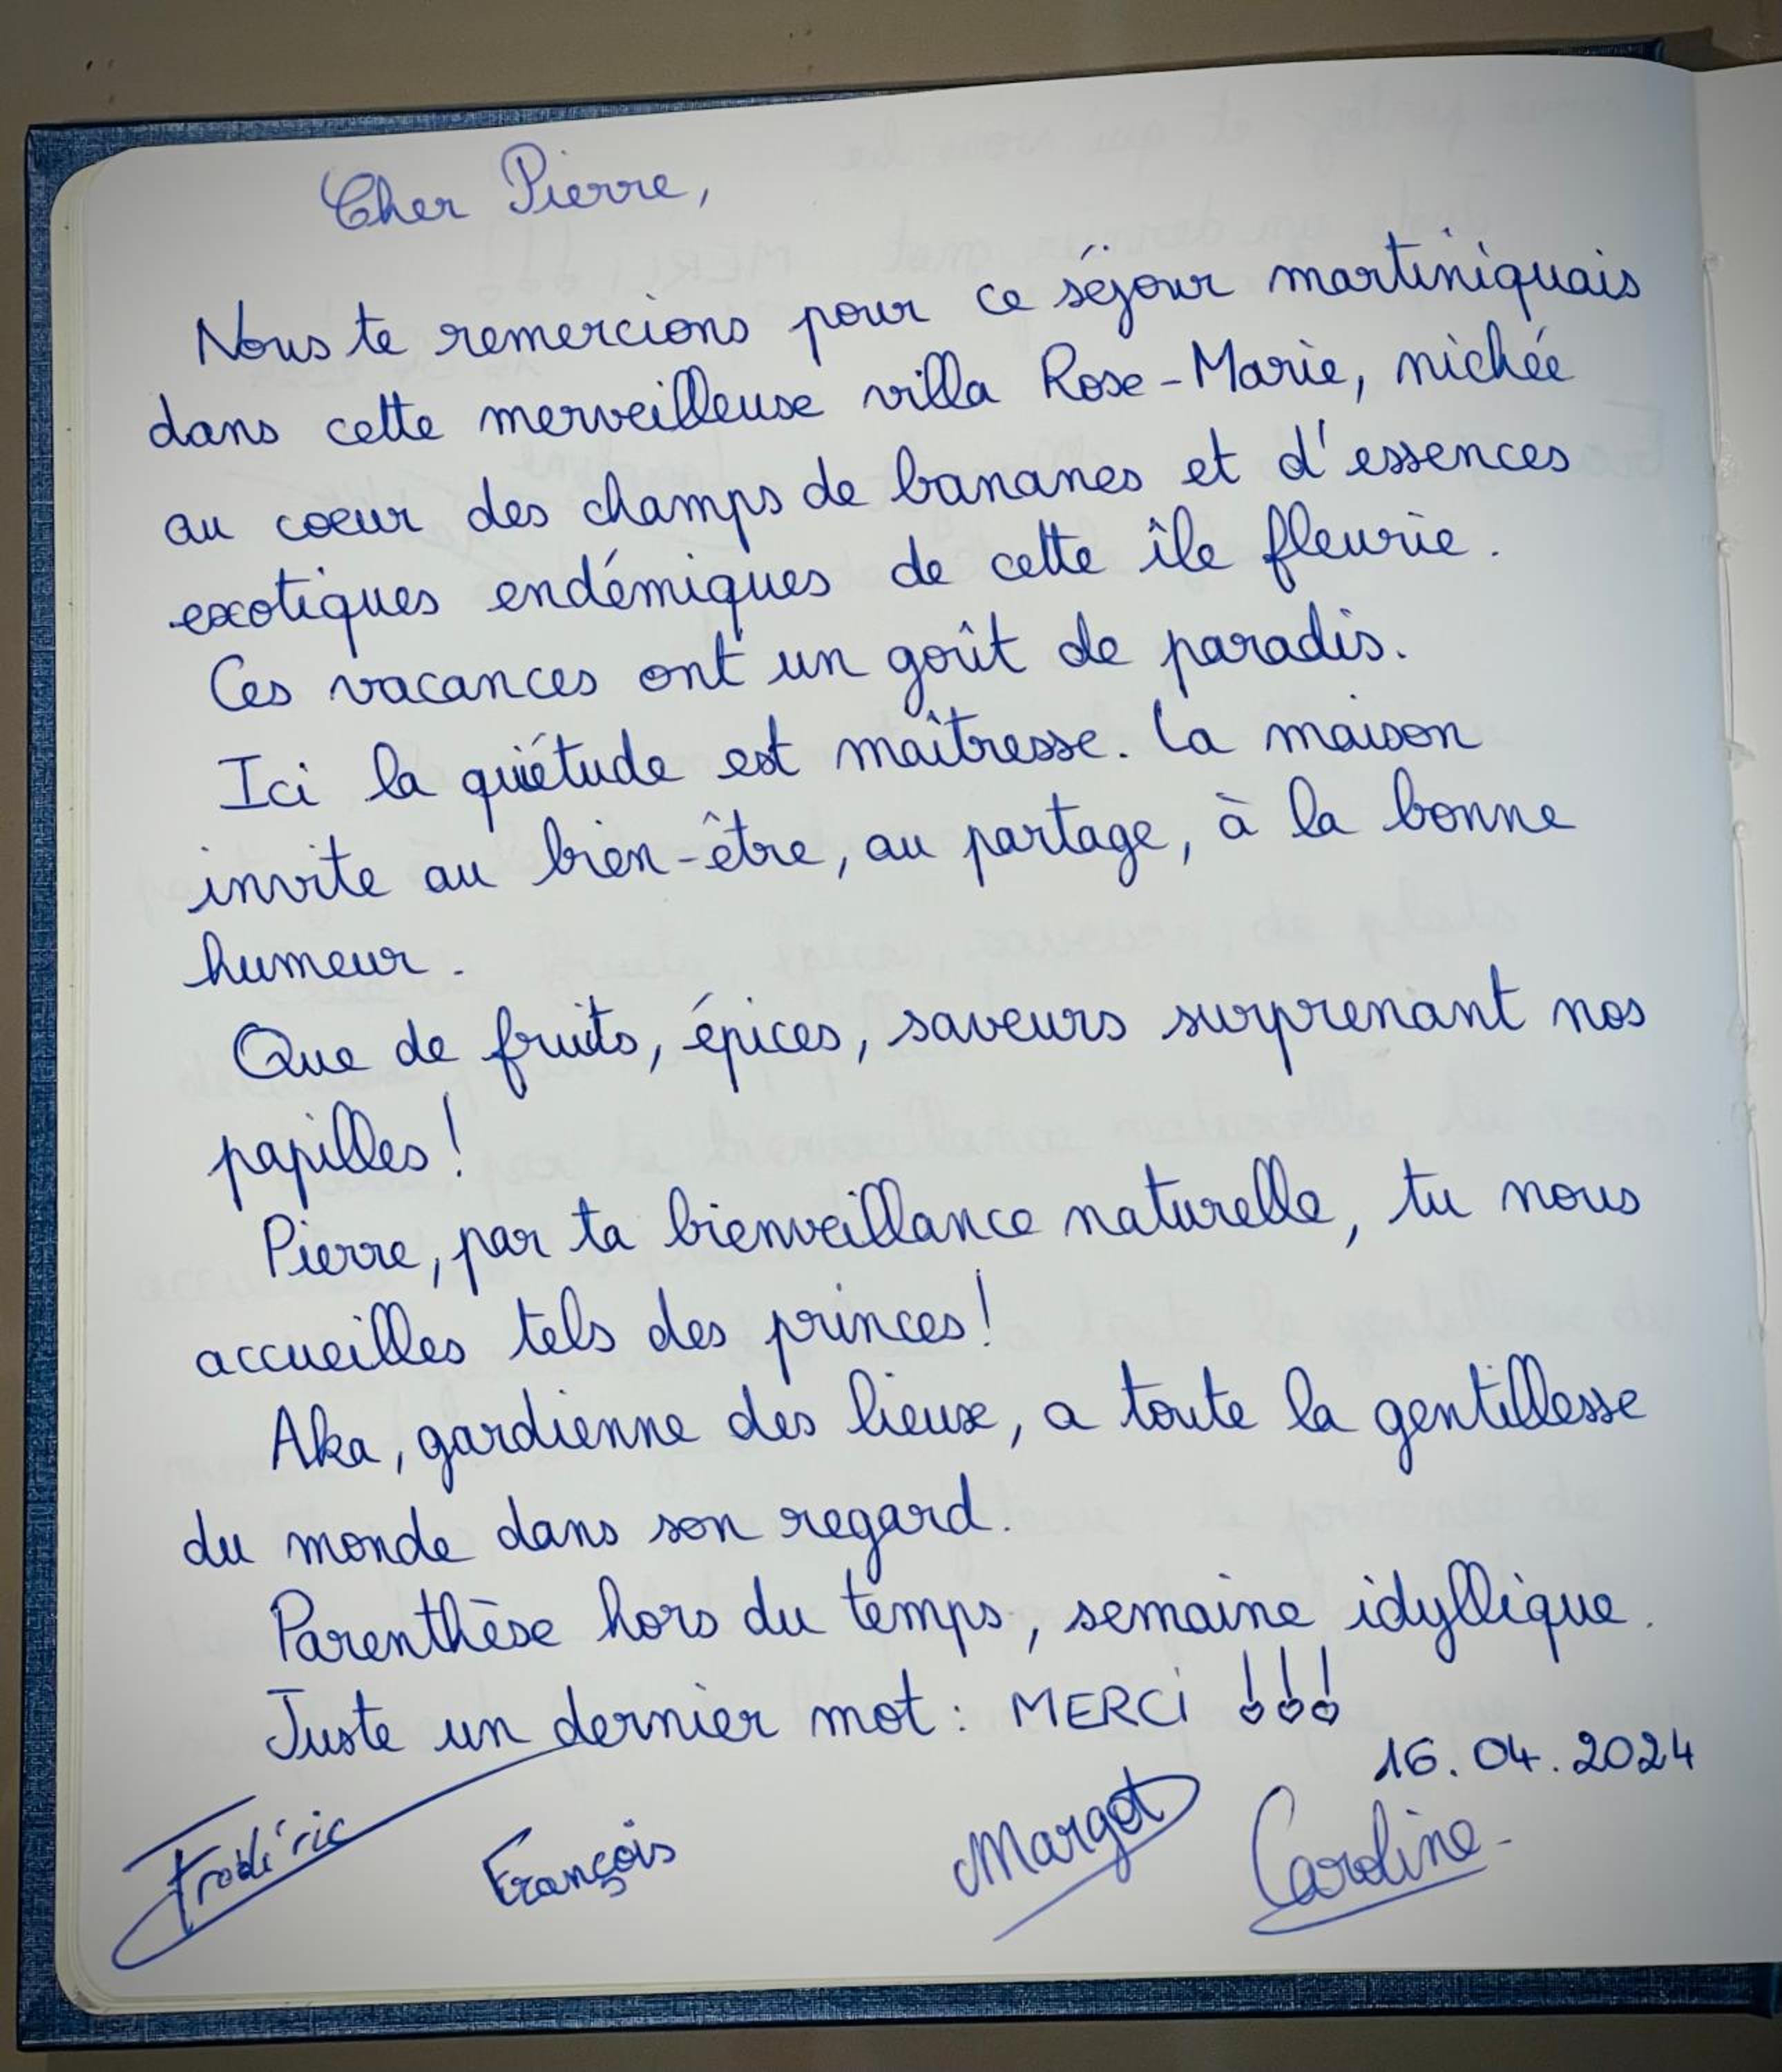 Cher Pierre,
Nous te remercions pour ce séjour martiniquais
dans cette merveilleuse villa Rose-Marie, nichée
au coeur des champs de bananes et d'essences
exotiques endémiques de cette île fleurie.
Ces vacances ont un goût de paradis.
Ici la quiétude est maîtresse. La maison
invite au bien-être, au partage, à la bonne
humeur.
Que de fruits, épices, saveurs surprenant nos
papilles !
Pierre, par ta bienveillance naturelle, tu nous
accueilles tels des princes !
Aka, gardienne des lieux, a toute la gentillesse
du monde dans son regard.
Parenthèse hors du temps, semaine idyllique.
Juste un dernier mot : MERCi !!!
16.04.2024
Frédéric François Margot Caroline